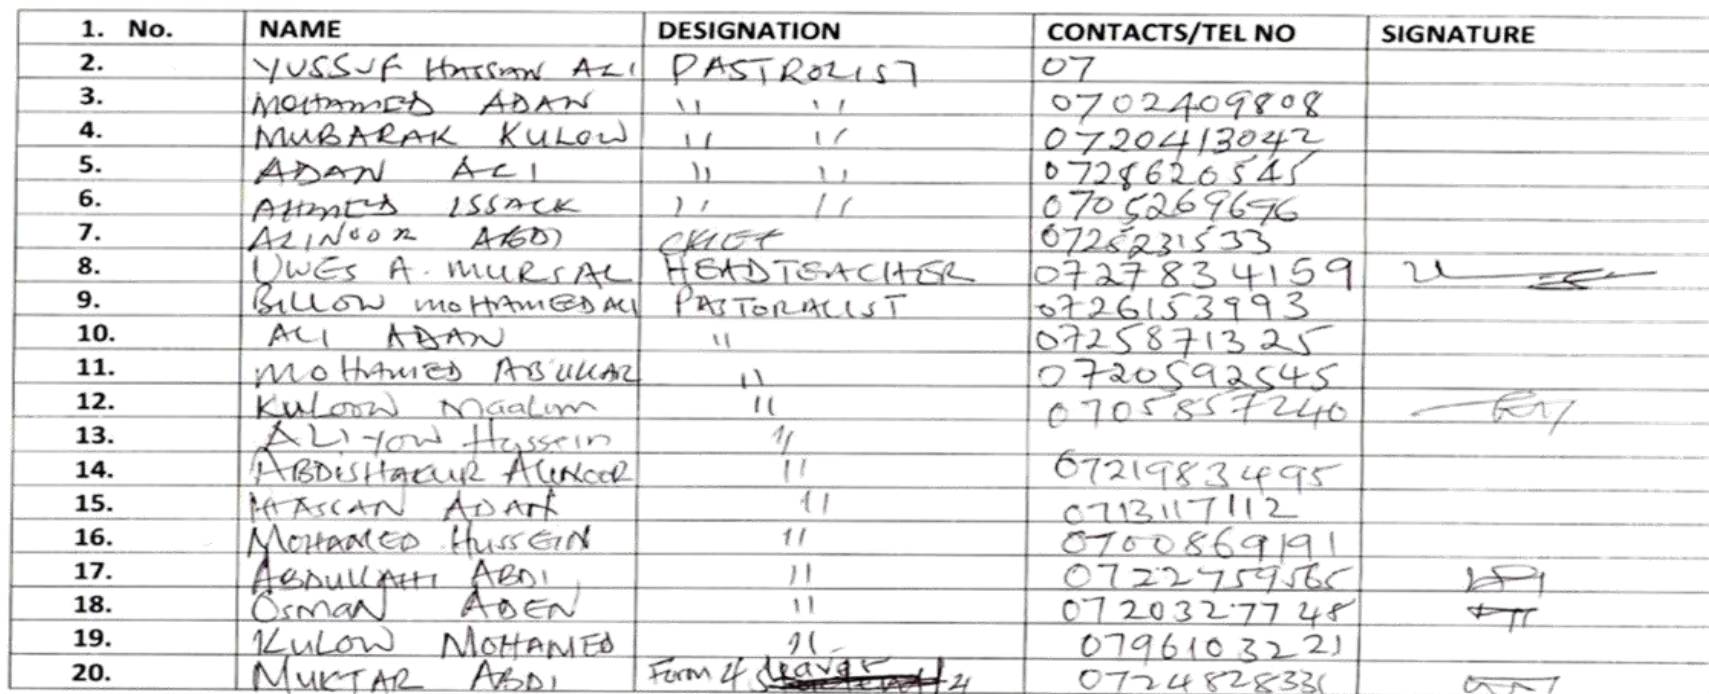 1. No. NAME DESIGNATION CONTACTS/TEL NO SIGNATURE
2. YUSSUF HASSAN ALI PASTROLIST 07
3. MOHAMED ADAN " " 0702409808
4. MUBARAK KULOW " " 0720413042
5. ADAN ALI " " 0728620545
6. AHMED ISSACK " " 0705269696
7. ALINOOR ABDI CHIEF 0725231533
8. UWES A. MURSAL HEADTEACHER 0727834159
9. BILLOW MOHAMED ALI PASTORALIST 0726153993
10. ALI ADAN " 0725871325
11. MOHAMED ABUKAR " 0720592545
12. Kuloow Maalim " 0705857240
13. ALIYOW Hussein "
14. ABDISHAKUR ALINOOR " 0721983495
15. HASSAN ADAN " 0713117112
16. MOHAMED HUSSEIN " 0700869191
17. ABDULLAHI ABDI " 0722759565
18. OSMAN ADEN " 0720327748
19. KULOW MOHAMED " 0796103221
20. MUKTAR ABDI Form 4 leaver 0724828331